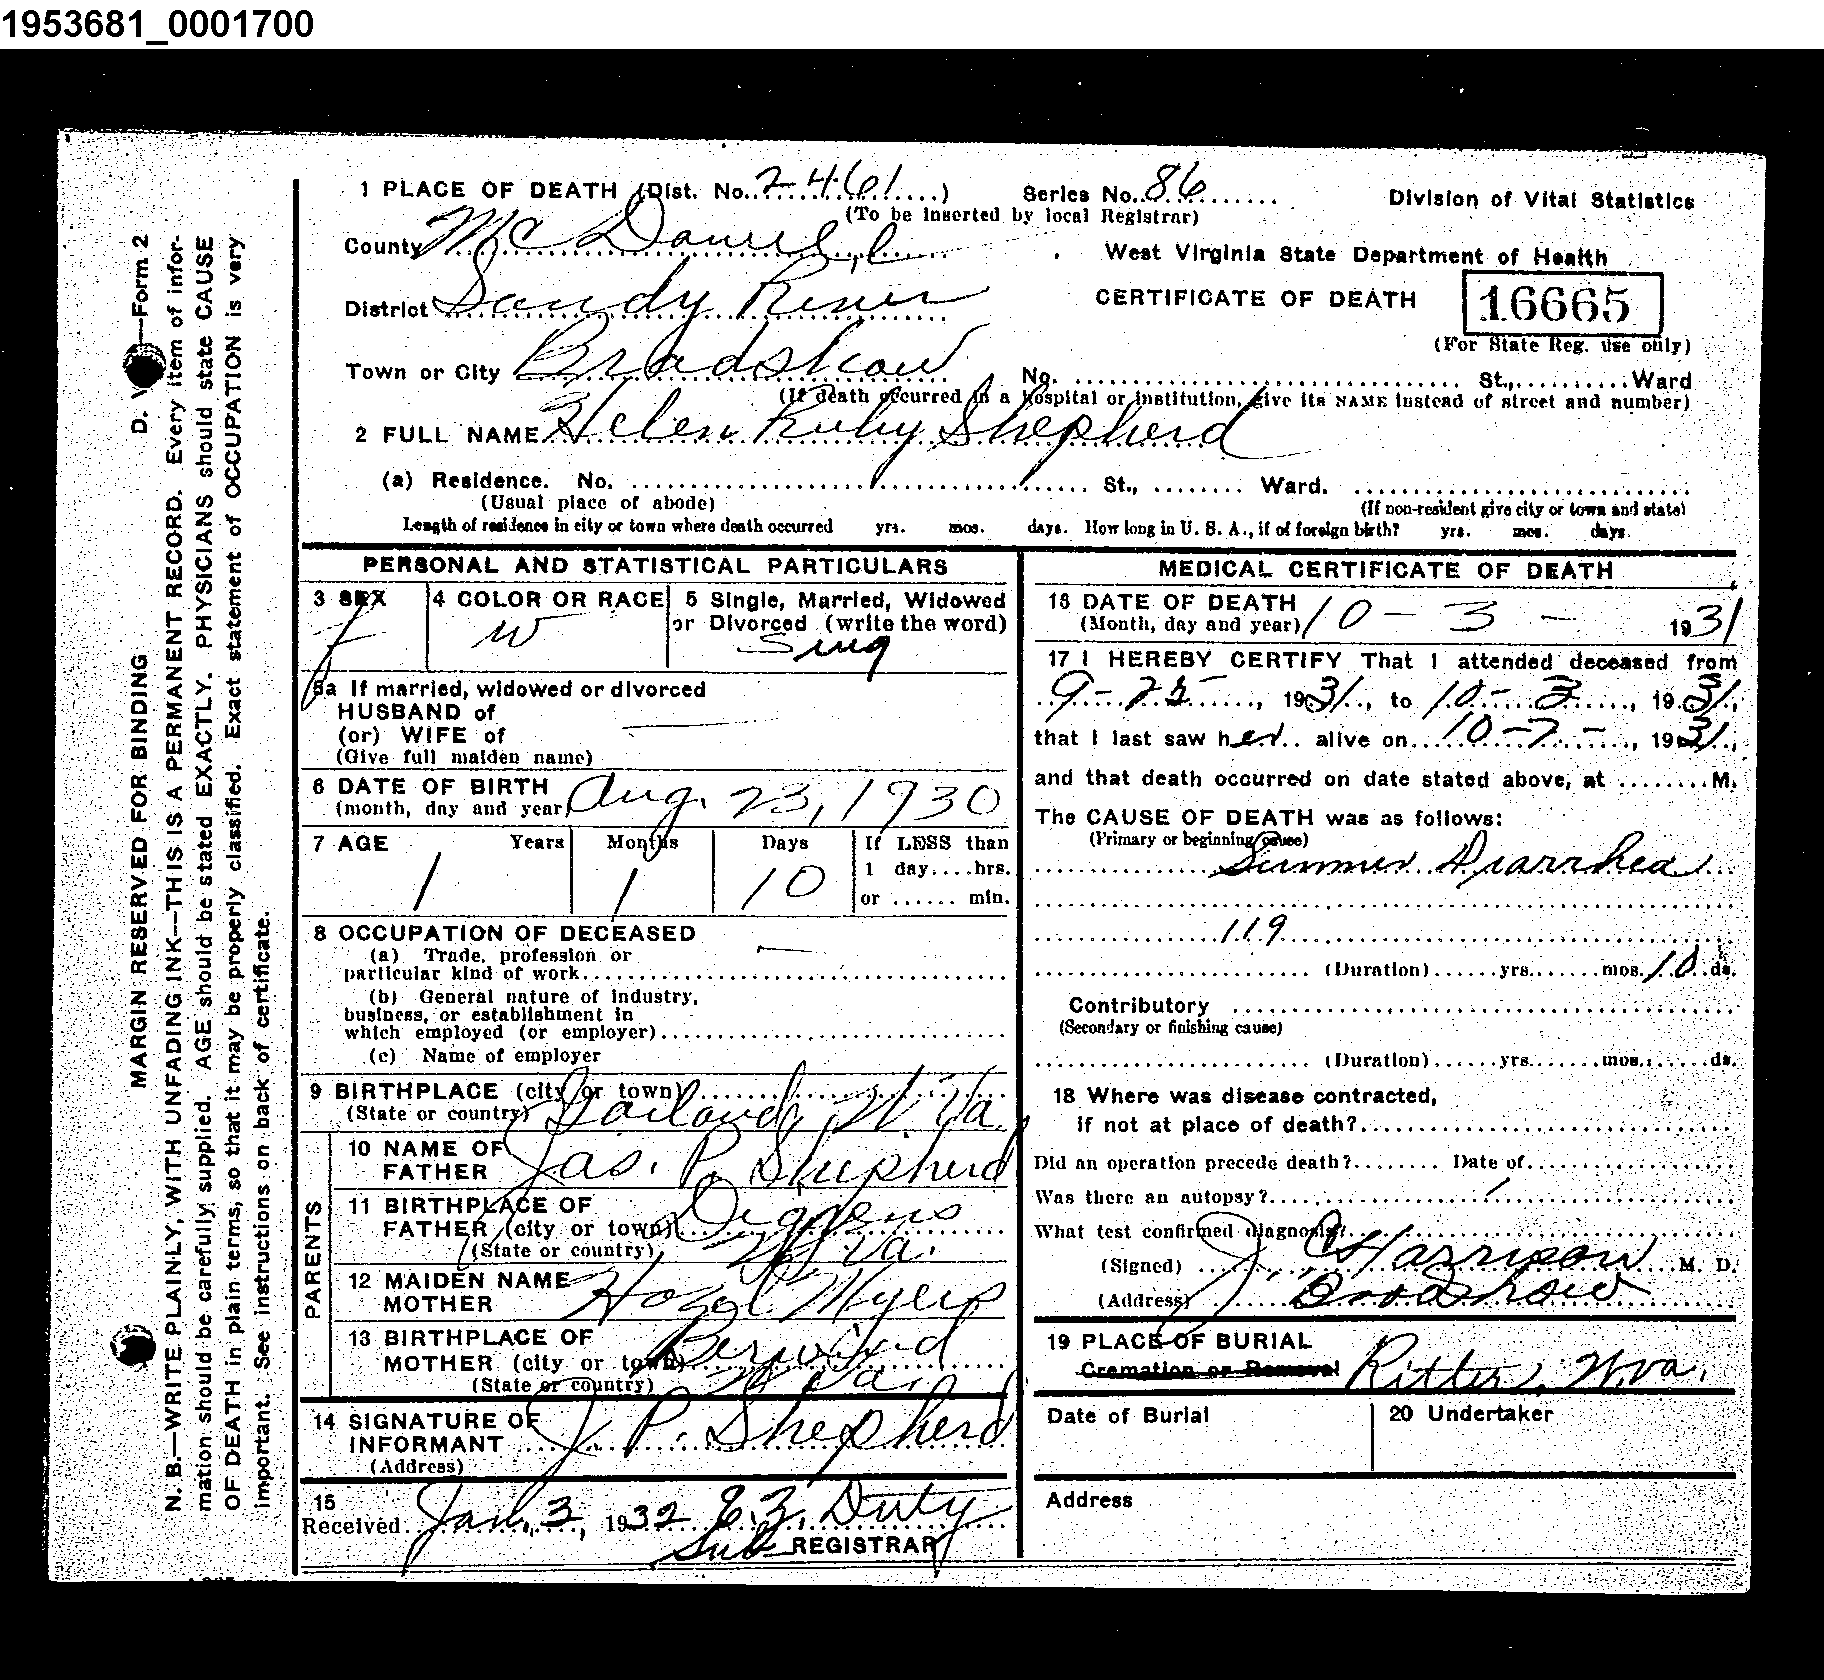 1953681_0001700
1 PLACE OF DEATH (Dist. No. 2461) Series No. 86 Division of Vital Statistics
(To be inserted by local Registrar)
County McDowell
West Virginia State Department of Health
District Sandy River
CERTIFICATE OF DEATH 16665
(For State Reg. use only)
Town or City Bradshaw No. St., Ward
(If death occurred in a hospital or institution, give its NAME instead of street and number)
2 FULL NAME Helen Ruby Shepherd
(a) Residence. No. St., Ward.
(Usual place of abode) (If non-resident give city or town and state)
Length of residence in city or town where death occurred yrs. mos. days. How long in U. S. A., if of foreign birth? yrs. mos. days.
PERSONAL AND STATISTICAL PARTICULARS
3 SEX 4 COLOR OR RACE 5 Single, Married, Widowed
or Divorced (write the word)
f W Sing
5a If married, widowed or divorced
HUSBAND of
(or) WIFE of
(Give full maiden name)
6 DATE OF BIRTH
(month, day and year) Aug. 23, 1930
7 AGE Years Months Days If LESS than
1 day....hrs.
or ...... min.
1 1 10
8 OCCUPATION OF DECEASED
(a) Trade, profession or
particular kind of work
(b) General nature of industry,
business, or establishment in
which employed (or employer)
(c) Name of employer
9 BIRTHPLACE (city or town)
(State or country) Garland, W. Va.
PARENTS
10 NAME OF
FATHER Jas. P. Shepherd
11 BIRTHPLACE OF
FATHER (city or town)
(State or country) W Va.
12 MAIDEN NAME
MOTHER Hazel Myers
13 BIRTHPLACE OF
MOTHER (city or town) Berwind
(State or country) W Va.
14 SIGNATURE OF
INFORMANT J. P. Shepherd
(Address)
15
Received Jan. 3, 1932 E. Z. Duty
Sub REGISTRAR
MEDICAL CERTIFICATE OF DEATH
16 DATE OF DEATH
(Month, day and year) 10 - 3 - 1931
17 I HEREBY CERTIFY That I attended deceased from
9-25-, 1931, to 10-3, 1931,
that I last saw her alive on 10-2-, 1931,
and that death occurred on date stated above, at ........M.
The CAUSE OF DEATH was as follows:
(Primary or beginning cause)
Summer Diarrhea
119
(Duration)......yrs.......mos. 10 ds.
Contributory
(Secondary or finishing cause)
(Duration)......yrs.......mos.......ds.
18 Where was disease contracted,
if not at place of death?
Did an operation precede death?........ Date of
Was there an autopsy?
What test confirmed diagnosis?
(Signed) J. C. Harrison M. D.
(Address) Bradshaw
19 PLACE OF BURIAL
Cremation or Removal Ritter, W. va.
Date of Burial 20 Undertaker
Address
D. V.—Form 2
MARGIN RESERVED FOR BINDING
N. B.—WRITE PLAINLY, WITH UNFADING INK—THIS IS A PERMANENT RECORD. Every item of infor-
mation should be carefully supplied. AGE should be stated EXACTLY. PHYSICIANS should state CAUSE
OF DEATH in plain terms, so that it may be properly classified. Exact statement of OCCUPATION is very
important. See instructions on back of certificate.